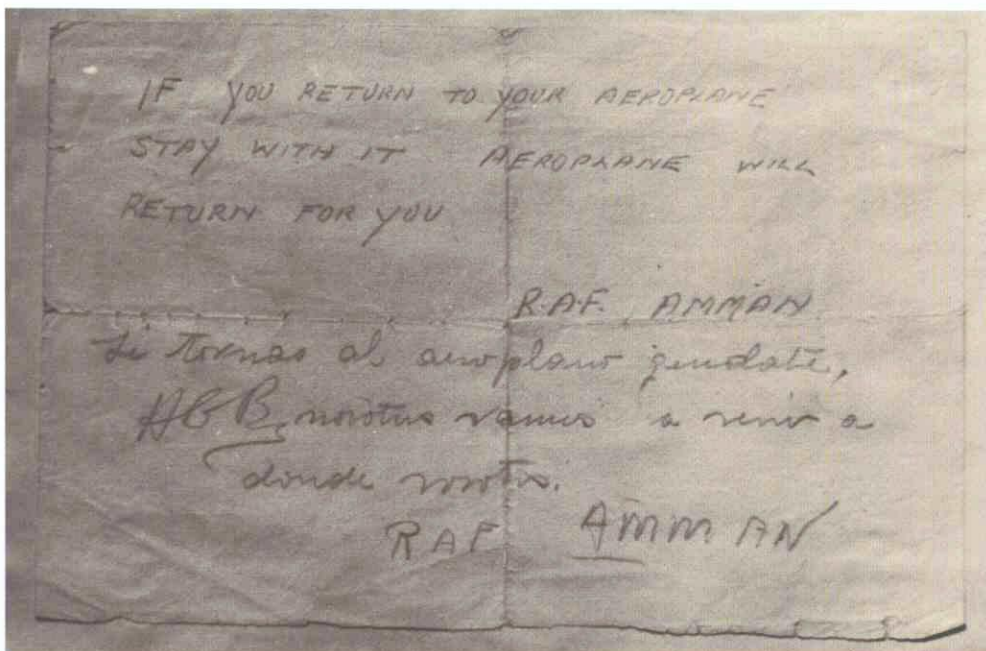 IF YOU RETURN TO YOUR AEROPLANE
STAY WITH IT AEROPLANE WILL
RETURN FOR YOU
R.A.F. AMMAN
Si tornas al aeroplano quedate,
nosotros vamos a venir a
donde vosotros.
RAF AMMAN